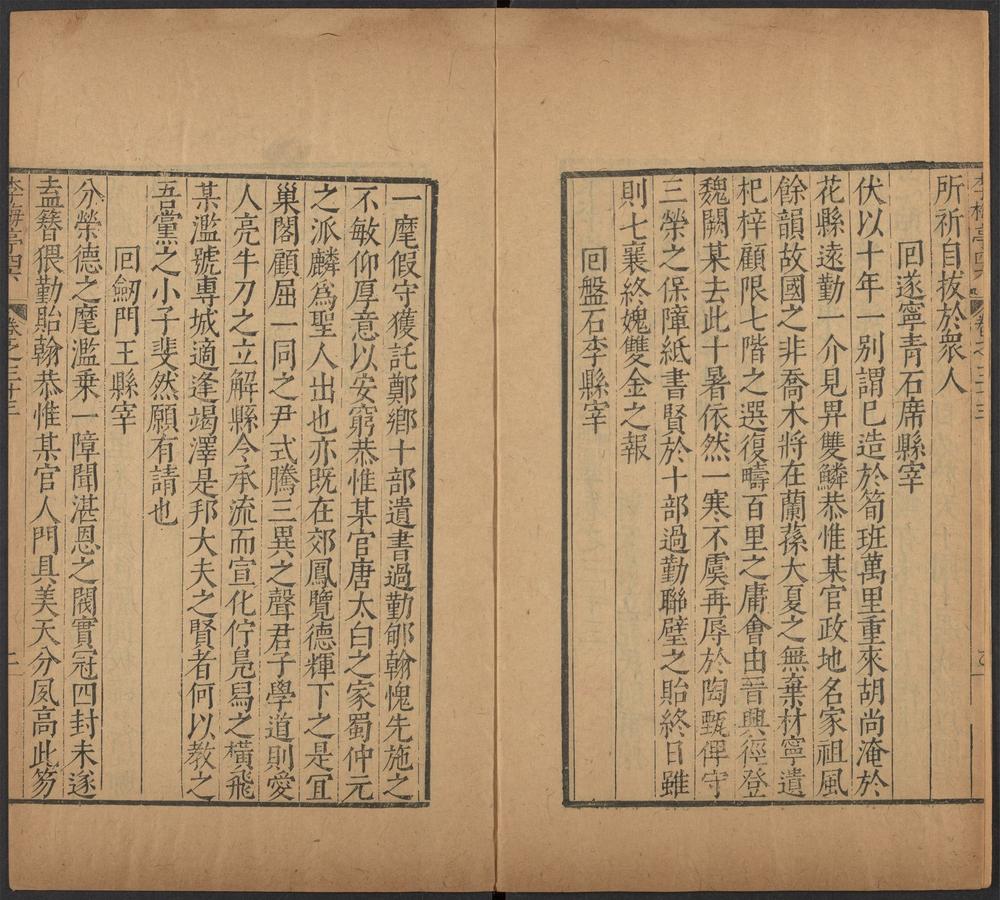 李梅亭四六 卷之三十三
所祈自拔於衆人
回遂寧青石席縣宰
伏以十年一別謂已造於筍班萬里重來胡尚淹於
花縣遠勤一介見畀雙鱗恭惟某官政地名家祖風
餘韻故國之非喬木將在蘭蓀大夏之無棄材寧遺
杞梓顧限七階之選復疇百里之庸會由晋興徑登
魏闕某去此十暑依然一寒不虞再辱於陶甄俾守
三榮之保障紙書賢於十部過勤聯璧之貽終日雖
則七襄終媿雙金之報
回盤石李縣宰
一麾假守獲託鄭鄉十部遺書過勤郇翰愧先施之
不敏仰厚意以安窮恭惟某官唐太白之家蜀仲元
之派麟爲聖人出也亦既在郊鳳覽德輝下之是宜
巢閣顧屈一同之尹式騰三異之聲君子學道則愛
人亮牛刀之立解縣令承流而宣化佇鳧舄之橫飛
某濫號專城適逢竭澤是邦大夫之賢者何以教之
吾黨之小子斐然願有請也
回劒門王縣宰
分榮德之麾濫乘一障聞湛恩之閥實冠四封未遂
盍簪猥勤貽翰恭惟某官人門具美天分夙高此笏
李梅亭四六 卷之三十三 二